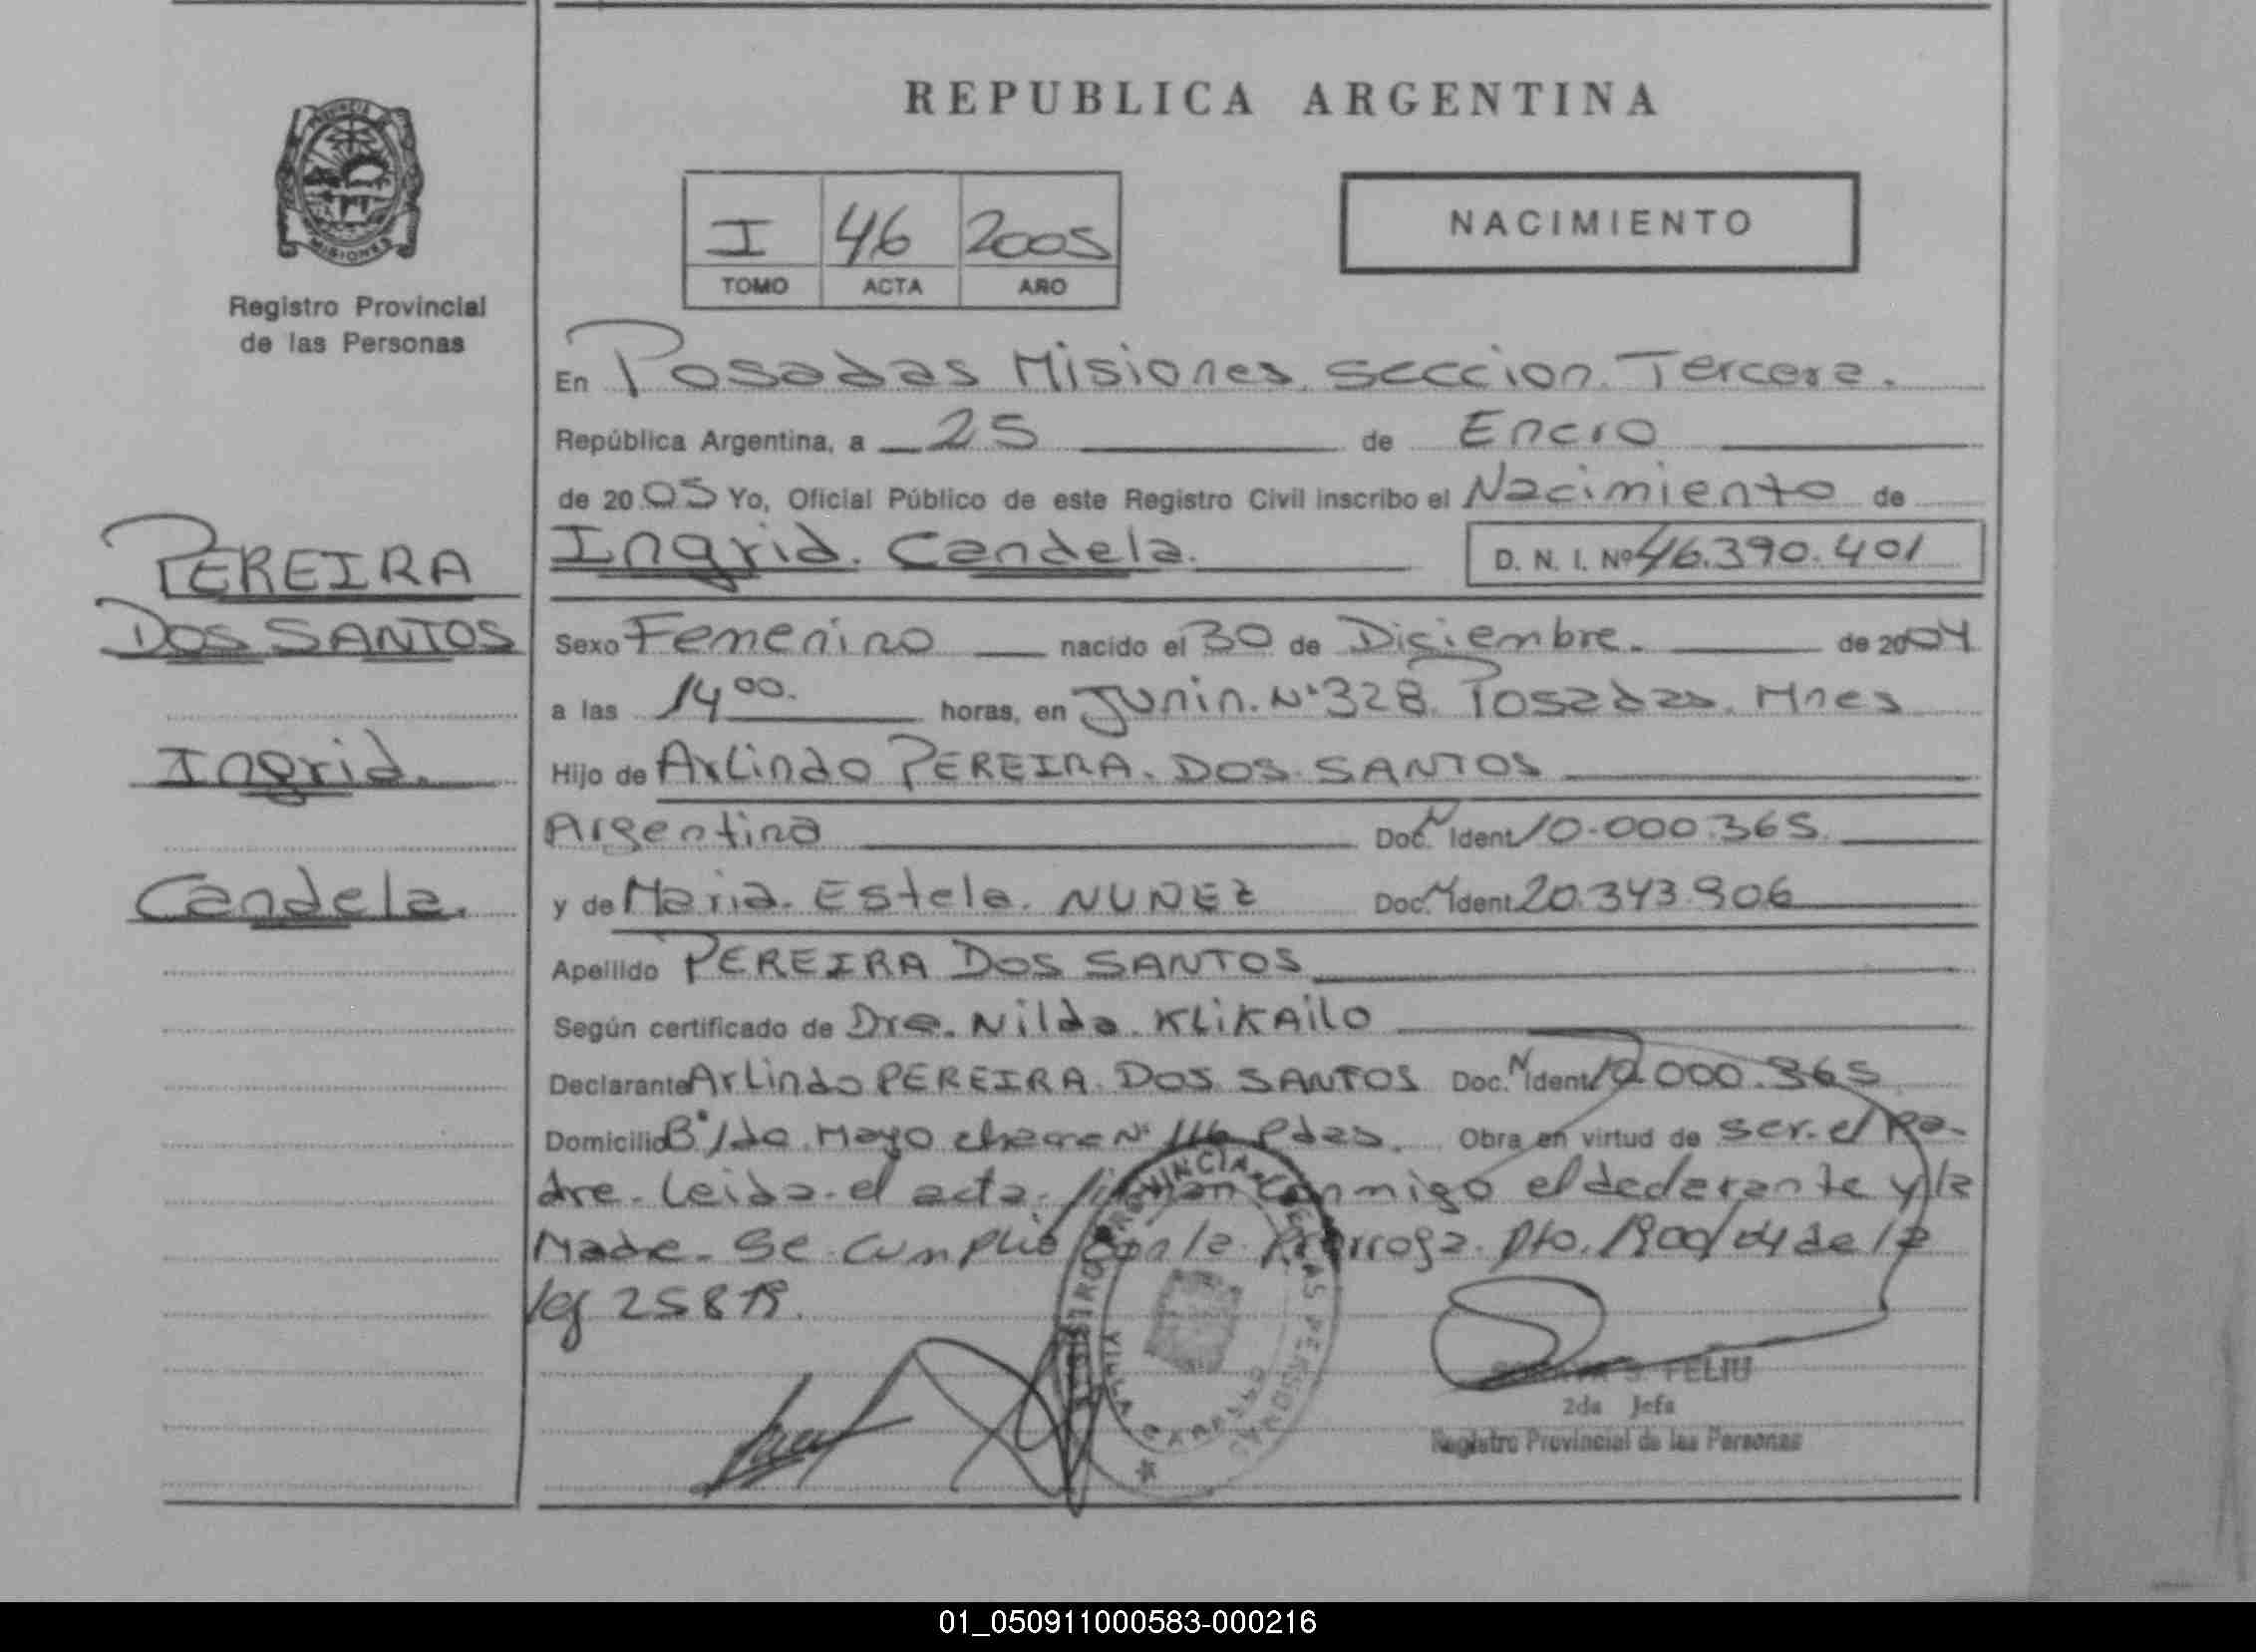 REPUBLICA ARGENTINA
PROVINCIA DE
MISIONES
Registro Provincial
de las Personas
I 46 2005
TOMO ACTA AÑO
NACIMIENTO
En Posadas Misiones. Seccion. Tercera.
República Argentina, a 25 de Enero
de 2005 Yo, Oficial Público de este Registro Civil inscribo el Nacimiento de
Ingrid. Candela. D. N. I. Nº 46.390.401
PEREIRA
DOS SANTOS
Ingrid.
Candela.
Sexo Femenino nacido el 30 de Diciembre. de 2004
a las 14 00. horas, en Junin. Nº 328. Posadas. Mnes
Hijo de Arlindo PEREIRA. DOS. SANTOS
Argentina Doc. N Ident 10.000.365.
y de Maria. Estela. NUNEZ Doc. N Ident. 20.343.906
Apellido PEREIRA DOS SANTOS
Según certificado de Dra. Nilda. KLiKAilo
Declarante ArLindo PEREIRA. DOS. SANTOS Doc. N Ident 10.000.365
Domicilio Bº 1do. Mayo chacra Nº 116 Pdas. Obra en virtud de ser. el Pa-
dre. Leida. el acta. firman conmigo el declarante y la
Madre. Se cumplio con la Prorroga. Dto. 1900/04 de la
ley 25819.
REGISTRO PROVINCIAL DE LAS PERSONAS
VILLA
S. FELIU
2da Jefa
Registro Provincial de las Personas
01_050911000583-000216